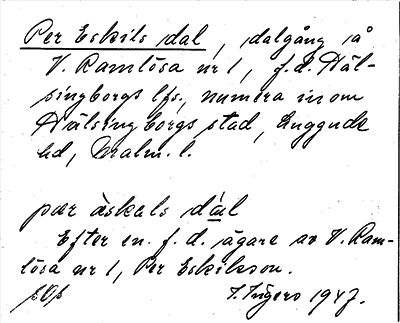 Per Eskils dal, dalgång å
V. Ramlösa nr 1, f.d. Häl-
singborgs lfs, numera inom
Hälsingborgs stad, Luggude
hd, Malm. l.
pær àskals dál
Efter en f.d. ägare av V. Ram-
lösa nr 1, Per Eskilsson.
I. Ingers 1947.